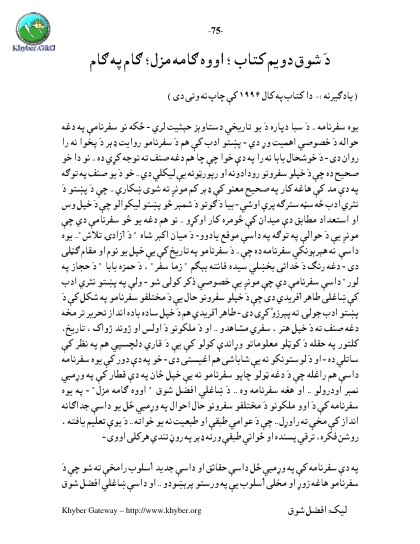 -75-
Khyber.ORG
دَ شوق دويم کتاب ؛ اووه ګامه مزل؛ ګام په ګام
( يادګيرنه :- دا کتاب په کال ۱۹۹۴ کې چاپ نه وتی دی )
يوه سفرنامه .. دَ سبا دپاره دَ يو تاريخي دستاويز حېثيت لري - ځکه نو سفرنامې په دغه
حواله دَ خصوصي اهميت وړ دي - پښتو ادب کې هم دَ سفرنامو روايت ډېر دَ پخوا نه را
روان دی - دَ خوشحال بابا نه را په دې خوا چې چا هم دغه صنف ته توجه کړې ده .. نو دا خو
صحيح ده چې دَ خپلو سفرونو رودادونه او رپورټونه يې ليکلي دي .. خو دَ يو صنف په توګه
په دې مد کې هاغه کار په صحيح معنو کې ډېر کم مونږ ته شوی ښکاري .. چې دَ پښتو دَ
نثري ادب څه سټه سترګه پرې اوشي - بيا دَ ګوتو دَ شمېر څو پښتو ليکوالو چې دَ خپل وس
او استعداد مطابق دې ميدان کې څومره کار اوکړو .. نو هم دغه يو څو سفرنامې دي چې
مونږ يې دَ حوالې په توګه په داسې موقع يادوو- دَ ميان اکبر شاه " دَ ازادۍ تلاش".. يوه
داسې نه هېرېدونکې سفرنامه ده چې .. دَ سفرنامو په تاريخ کې يې خپل يو نوم او مقام ګټلی
دی - دغه رنګ دَ خدائی بخښلې سيده قانته بيګم " زما سفر" .. دَ حمزه بابا " دَ حجاز په
لور" داسې سفرنامې دي چې مونږ يې خصوصي ذکر کولی شو - ولې په پښتو نثري ادب
کې ښاغلي طاهر اپريدي چې دَ خپلو سفرونو حال يې دَ مختلفو سفرنامو په شکل کې دَ
پښتو ادب جولۍ ته پېرزو کړی دی - طاهر اپريدي هم دَ خپل ساده باده انداز تحرير تر مخه
دغه صنف ته دَ خپل هنر ، سفري مشاهدو .. او دَ ملکونو دَ اولس او ژوند ژواک ، تاريخ،
کلتور په حقله دَ کوټلو معلوماتو وړاندې کولو کې يې دَ قاري دلچسپي هم په نظر کې
ساتلې ده - او دَ لوستونکو نه يې شاباشی هم اغيستی دی - خو په دې دور کې يوه سفرنامه
داسې هم راغله چې دَ دغه ټولو چاپو سفرنامو نه يې خپل ځان په دې قطار کې په وړمبي
نمبر اودرولو .. او هغه سفرنامه وه .. دَ ښاغلي افضل شوق " اووه ګامه مزل" - په يوه
سفرنامه کې دَ اوو ملکونو دَ مختلفو سفرونو حال احوال په وړمبي ځل يو داسې جداګانه
انداز کې مخې ته راوړل .. چې دَ عوامي طبقې او طبعيت نه يو خواته .. دَ يوې تعليم يافته ،
روشن فکره ، ترقي پسنده او ځوانې طبقې ورته ډېر په رون تندي هرکلی اووی -
په دې سفرنامه کې په وړمبي ځل داسې حقائق او داسې جديد اُسلوب رامخې ته شو چې دَ
سفرنامو هاغه زوړ او مخلی اُسلوب يې په ورستو پرېښودو .. او داسې ښاغلي افضل شوق
Khyber Gateway – http://www.khyber.org
ليک: افضل شوق